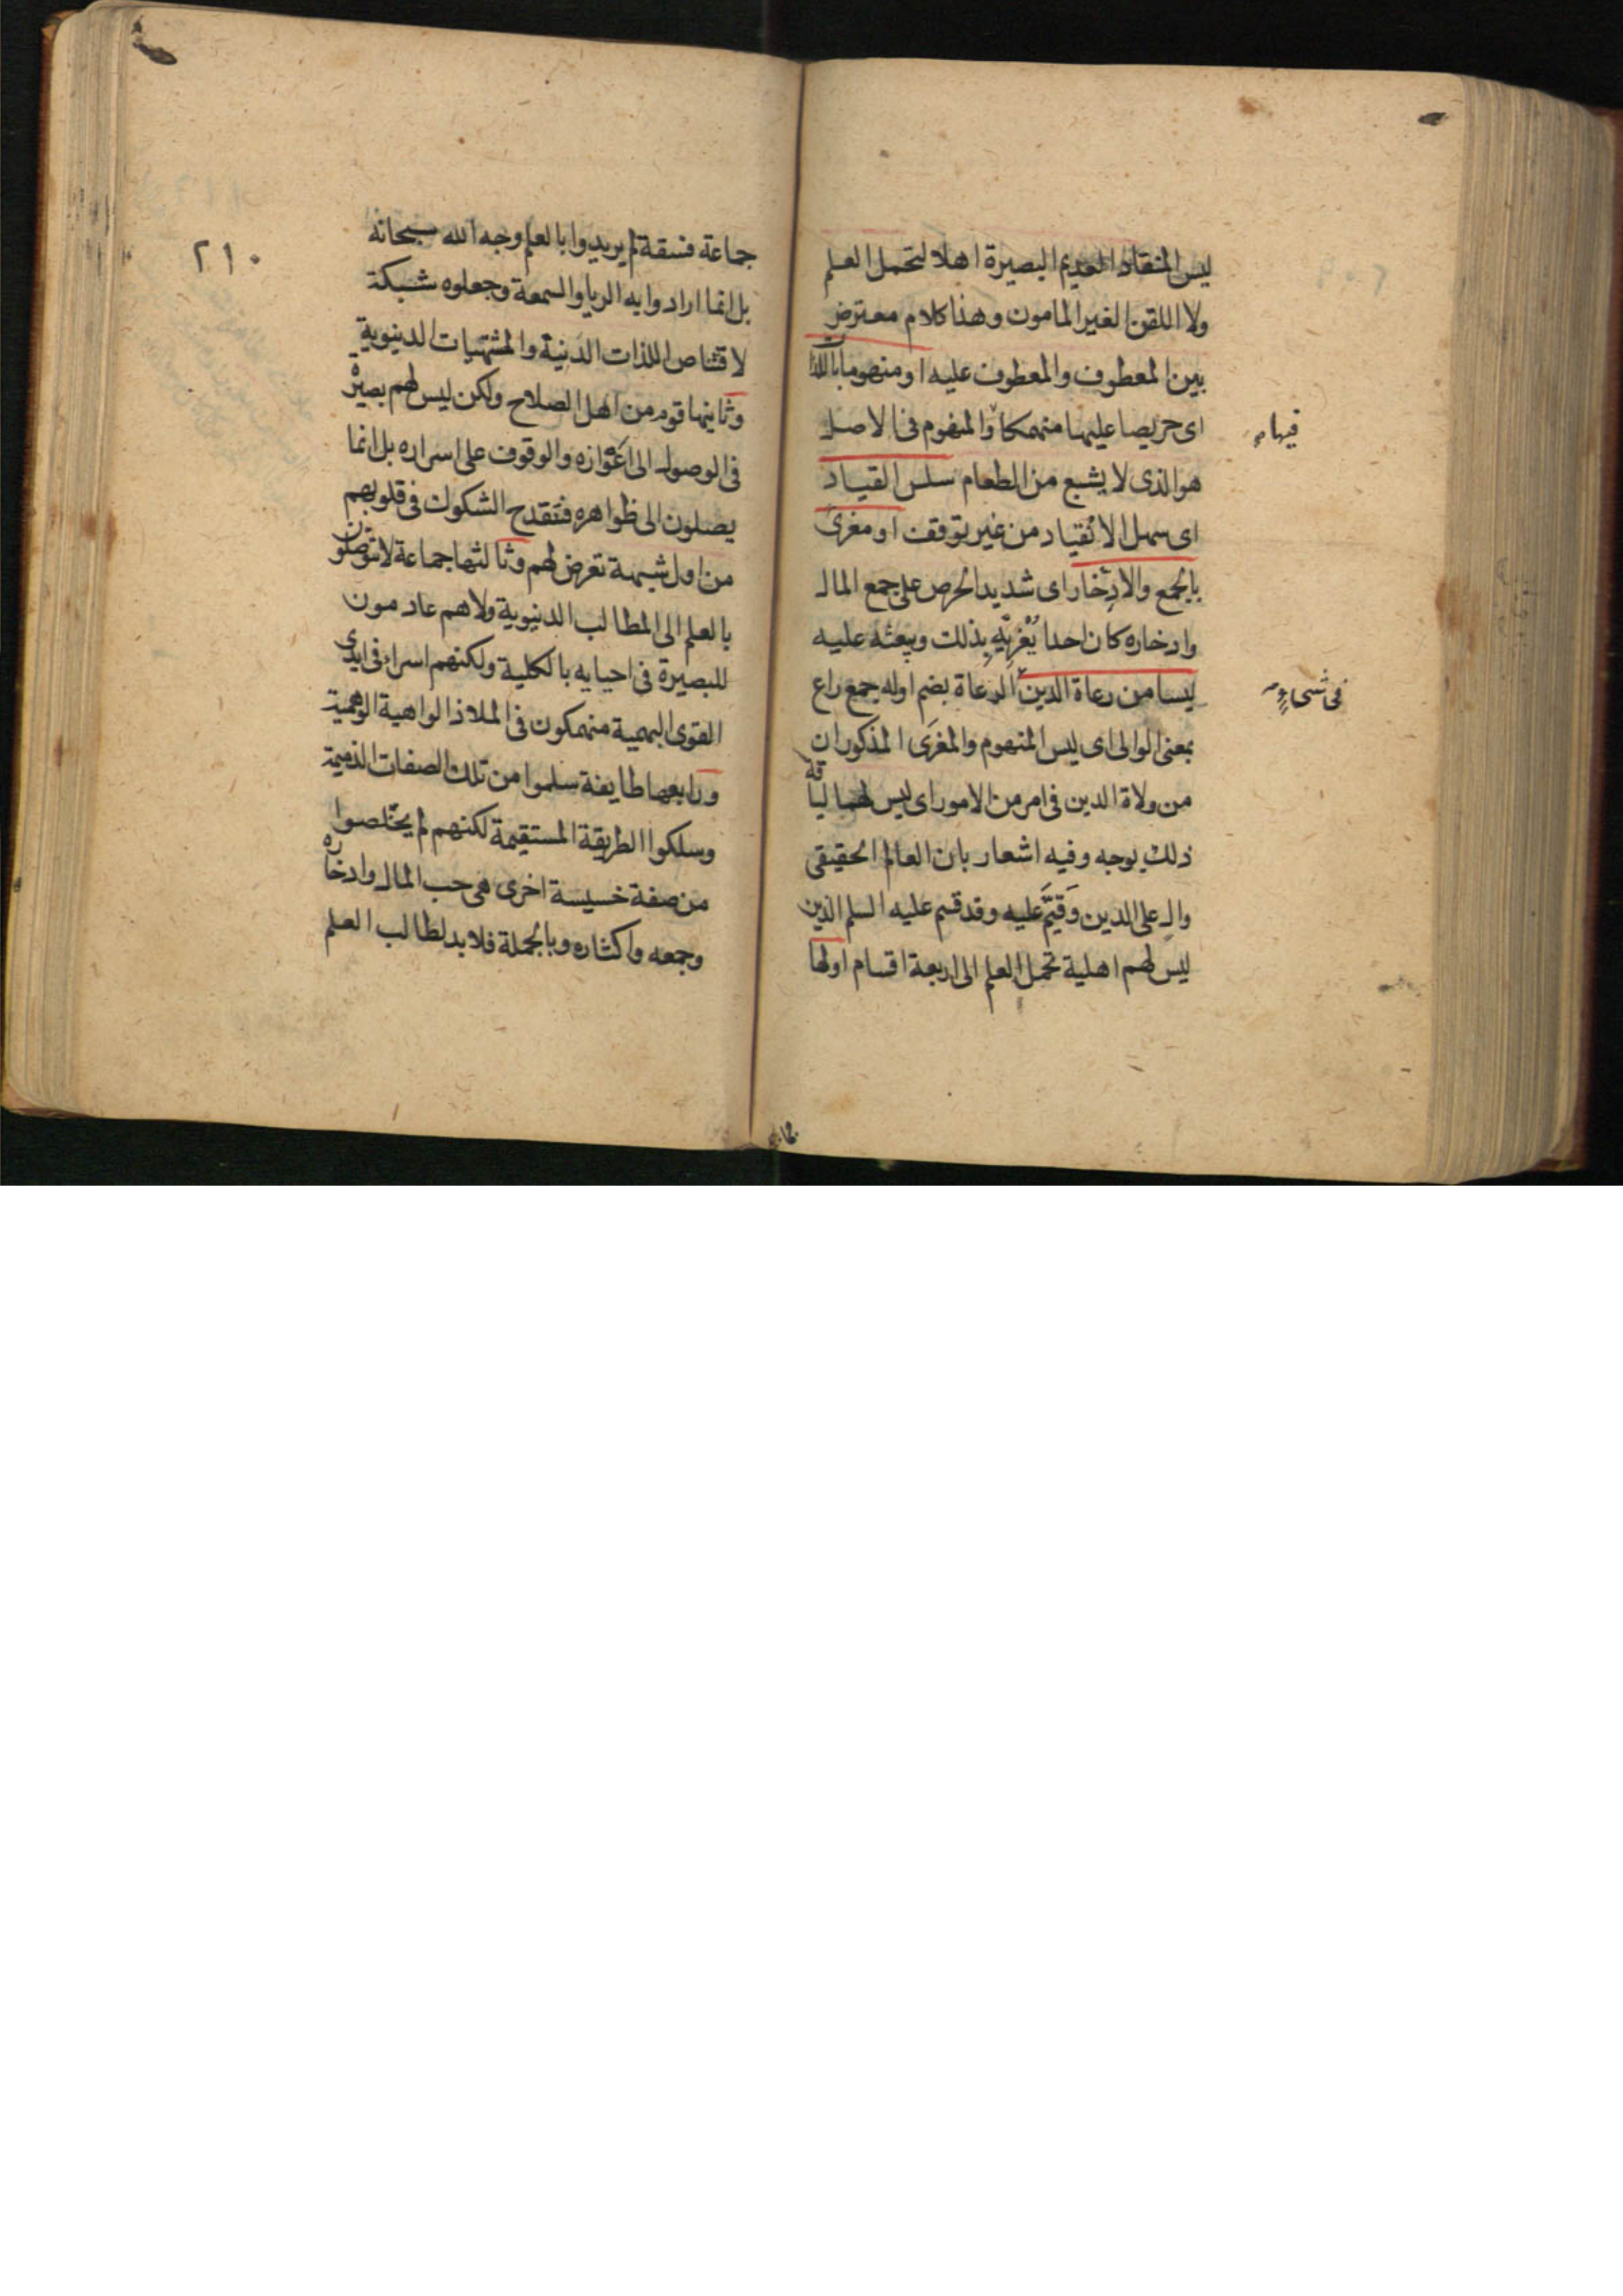 ليس المنقاد العديم البصيرة اهلا لتحمل العلم
ولا اللقن الغير المامون وهذا كلام معترض
بين المعطوف والمعطوف عليه او منهوما باللذة
اى حريصا عليها منهمكا والمنهوم فى الاصل
فيها
هو الذى لا يشبع من الطعام سلس القياد
اى سهل الانقياد من غير توقف او مغرى
بالجمع والادخار اى شديد الحرص على جمع المال
وادخاره كان احدا يغريه بذلك ويبعثه عليه
ليسا من رعاة الدين الرعاة بضم اوله جمع راع
فى شىء
بمعنى الوالى اى ليس المنهوم والمغرى المذكوران
من ولاة الدين فى امر من الامور اى ليس لهما لياقة
ذلك بوجه وفيه اشعار بان العالم الحقيقى
وال على الدين وقيم عليه وقد قسم عليه السلم الذين
ليس لهم اهلية تحمل العلم الى اربعة اقسام اولها
٢١٠
جماعة فسقة لم يريدوا بالعلم وجه الله سبحانه
بل انما ارادوا به الريا والسمعة وجعلوه شبكة
لاقتناص اللذات الدنية والمشتهيات الدنيوية
وثانيها قوم من اهل الصلاح ولكن ليس لهم بصيرة
فى الوصول الى اغواره والوقوف على اسراره بل انما
يصلون الى ظواهره فتقدح الشكوك فى قلوبهم
من اول شبهة تعرض لهم وثالثها جماعة لا يتوصلون
بالعلم الى المطالب الدنيوية ولا هم عادمون
للبصيرة فى احيايه بالكلية ولكنهم اسراء فى ايدى
القوى البهمية منهمكون فى الملاذ الواهية الوهمية
ورابعها طايفة سلموا من تلك الصفات الذميمة
وسلكوا الطريقة المستقيمة لكنهم لم يخلصوا
من صفة خسيسة اخرى هى حب المال وادخاره
وجمعه واكثاره وبالجملة فلا بد لطالب العلم